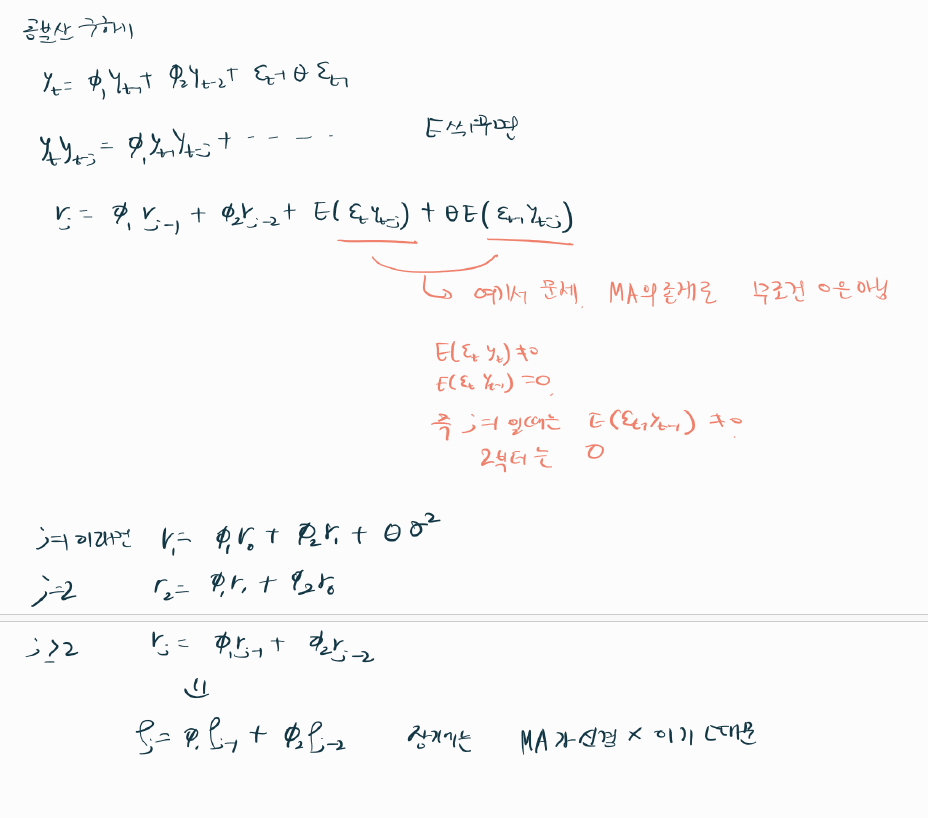 공분산 구하기
y_t = φ_1 y_{t-1} + φ_2 y_{t-2} + ε_t + θ ε_{t-1}
y_t y_{t-j} = φ_1 y_{t-1} y_{t-j} + - - - -
E 씌우면
r_j = φ_1 r_{j-1} + φ_2 r_{j-2} + E(ε_t y_{t-j}) + θE(ε_{t-1} y_{t-j})
여기서 문제. MA의 존재로 무조건 0은 아님
E(ε_t y_t) ≠ 0
E(ε_t y_{t-1}) = 0.
즉 j=1 일때는 E(ε_{t-1} y_{t-1}) ≠ 0.
2부터는 0
j=1 이라면 r_1 = φ_1 r_0 + φ_2 r_1 + θσ²
j=2 r_2 = φ_1 r_1 + φ_2 r_0
j ≥ 2 r_j = φ_1 r_{j-1} + φ_2 r_{j-2}
⇓
ρ_j = φ_1 ρ_{j-1} + φ_2 ρ_{j-2} 장기에는 MA가 × 이기 때문